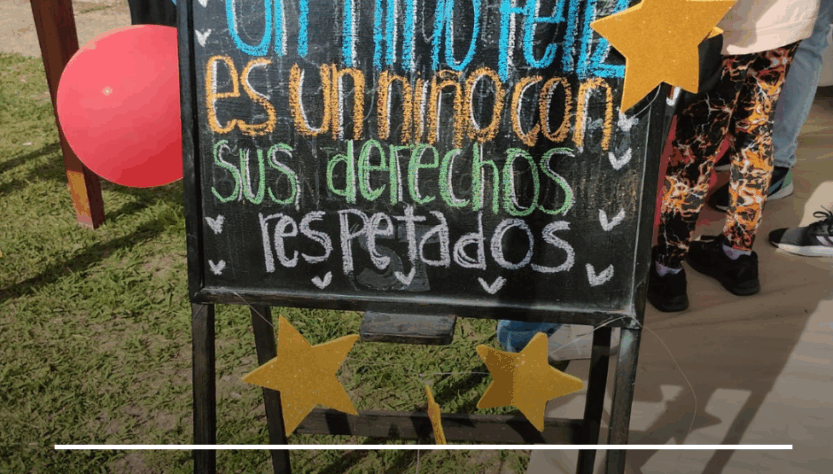 Un niño feliz
es un niño con
sus derechos
respetados